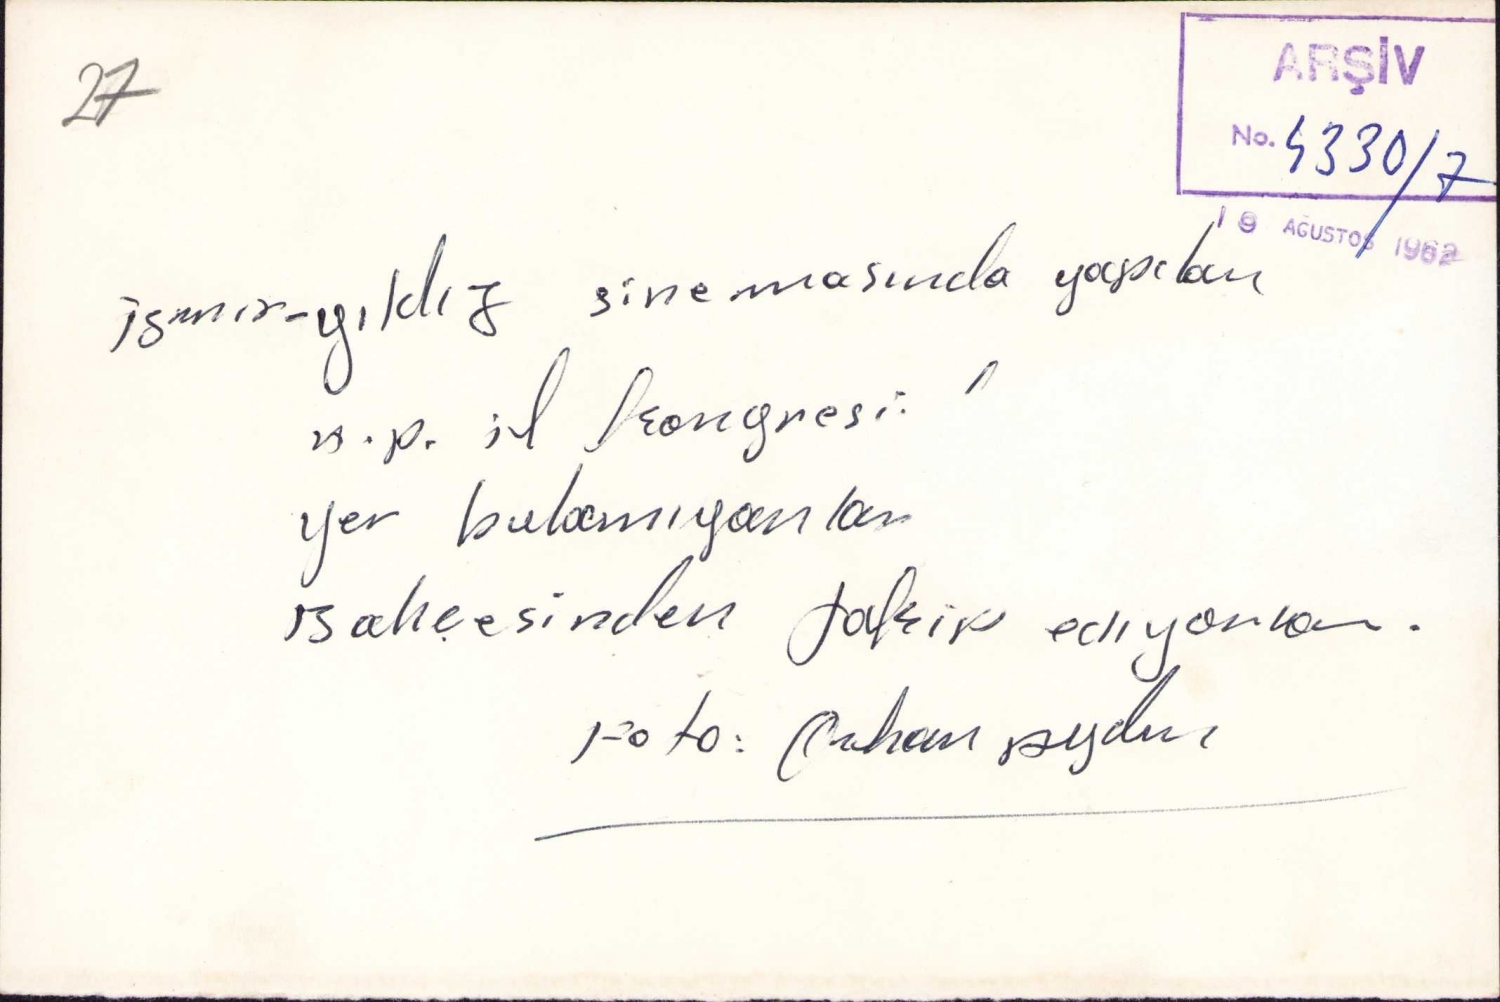 27
ARŞİV
No. 4330/7
19 AĞUSTOS 1962
izmir-yıldız sinemasında yapılan
n.p. il kongresi.
yer bulamıyanlar
Bahçesinden takip ediyorlar.
Foto: Orhan Aydın